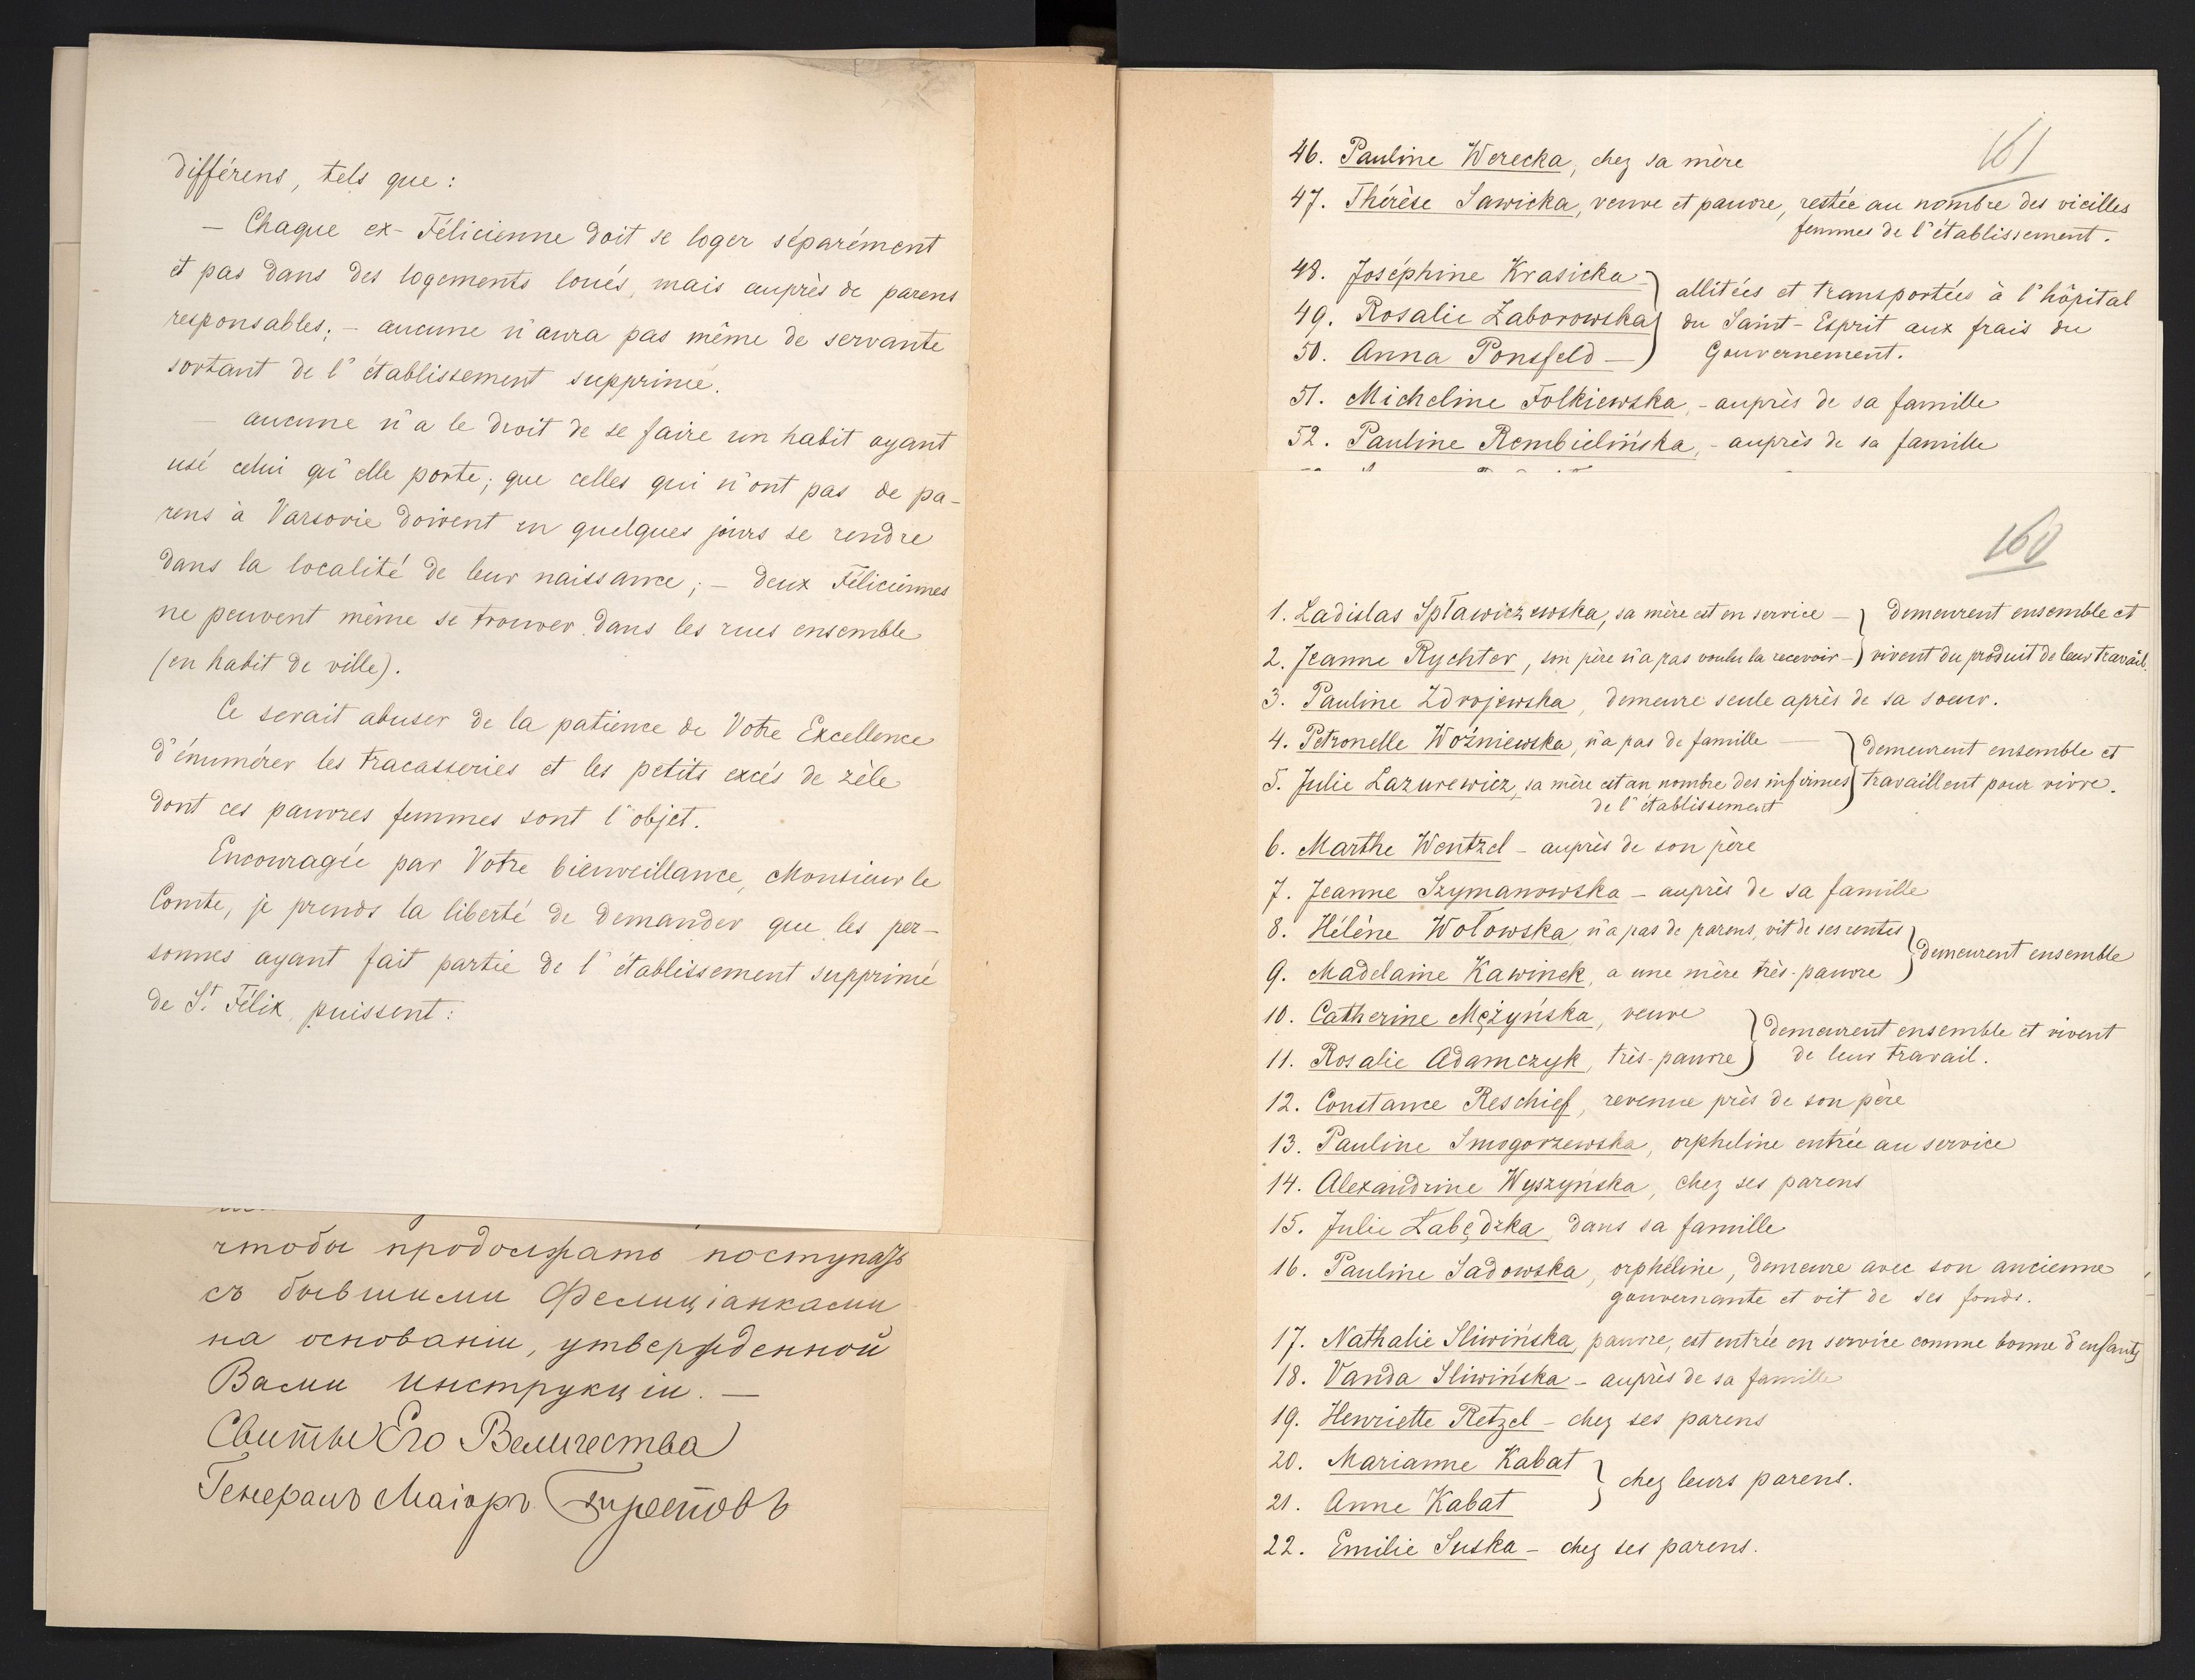 différens, tels que :
— Chaque ex-Félicienne doit se loger séparément
et pas dans des logements loués, mais auprès de parens
responsables; — aucune n'aura pas même de servante
sortant de l'établissement supprimé.
— aucune n'a le droit de se faire un habit ayant
usé celui qu'elle porte; que celles qui n'ont pas de pa-
rens à Varsovie doivent en quelques jours se rendre
dans la localité de leur naissance; — deux Féliciennes
ne peuvent même se trouver dans les rues ensemble
(en habit de ville).
Ce serait abuser de la patience de Votre Excellence
d'énumérer les tracasseries et les petits excés de zèle
dont ces pauvres femmes sont l'objet.
Encouragée par Votre bienveillance, Monsieur le
Comte, je prends la liberté de demander que les per-
sonnes ayant fait partie de l'établissement supprimé
de St. Félix, puissent :
чтобы продолжать поступать
съ бывшими Фелиціанками
на основаніи, утвержденной
Вами инструкціи. —
Свиты Его Величества
Генералъ Маіоръ
161
46. Pauline Werecka, chez sa mère
47. Thérèse Sawicka, veuve et pauvre, restée au nombre des vieilles
femmes de l'établissement.
48. Joséphine Krasicka
49. Rosalie Zaborowska
50. Anna Ponsfeld —
allitées et transportées à l'hôpital
du Saint-Esprit aux frais du
Gouvernement.
51. Micheline Folkiewska, - auprès de sa famille
52. Pauline Rembielińska, - auprès de sa famille
160
1. Ladislas Spławiczewska, sa mère est en service — } demeurent ensemble et
2. Jeanne Rychter, son père n'a pas voulu la recevoir — } vivent du produit de leur travail.
3. Pauline Zdrojewska, demeure seule après de sa soeur.
4. Petronelle Woźniewska, n'a pas de famille — } demeurent ensemble et
5. Julie Lazurewicz, sa mère est au nombre des infirmes } travaillent pour vivre.
de l'établissement
6. Marthe Wentzel - auprès de son père
7. Jeanne Szymanowska - auprès de sa famille
8. Hélène Wołowska, n'a pas de parens, vit de ses rentes
9. Madelaine Kawinek, a une mère très-pauvre } demeurent ensemble
10. Catherine Mężyńska, veuve } demeurent ensemble et vivent
11. Rosalie Adamczyk, très-pauvre } de leur travail.
12. Constance Reschief, revenue près de son père
13. Pauline Smogorzewska, orpheline entrée au service
14. Alexandrine Wyszyńska, chez ses parens
15. Julie Łabędzka, dans sa famille
16. Pauline Sadowska, orphéline, demeure avec son ancienne
gouvernante et vit de ses fonds.
17. Nathalie Sliwińska, pauvre, est entrée en service comme bonne d'enfants
18. Vanda Sliwińska - auprès de sa famille
19. Henriette Retzel - chez ses parens
20. Marianne Kabat
21. Anne Kabat } chez leurs parens.
22. Emilie Suska - chez ses parens.